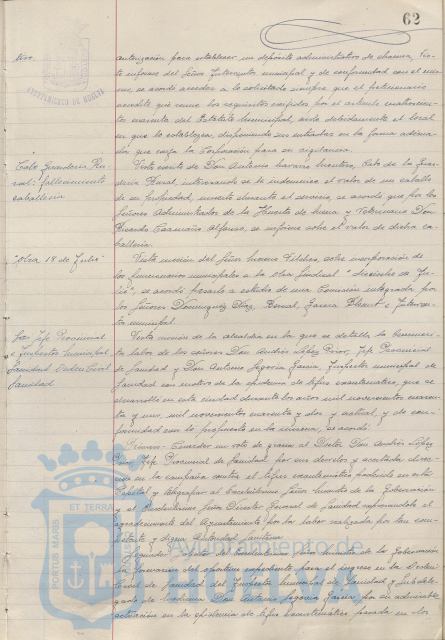 62
tivo.
autorización para establecer un depósito administrativo de
te informe del Señor Interventor municipal y de conformidad con el mis-
mo, se acordó acceder a lo solicitado siempre que el peticionario
acredite que reune los requisitos exigidos por el artículo cuatrocien-
tos del Estatuto Municipal, aisle debidamente el local
en que lo establezca, disponiendo sus entradas en la forma adecua-
da que exija la Corporación para su vigilancia.
AYUNTAMIENTO DE HUELVA
Cabo Guardería Ru-
ral: fallecimiento
caballería
Visto escrito de Don Antonio Cabo de la Guar-
dería Rural, interesando se le indemnice el valor de un caballo
de su propiedad, muerto durante el servicio, se acordó que por los
Señores Administrador de la y Veterinario Don
Ricardo Alfonso, se informe sobre el valor de dicha ca-
ballería.
"Obra 18 de Julio"
Vista moción del Señor sobre incorporación de
los funcionarios municipales a la Obra Sindical "Dieciocho de Ju-
lio", se acordó pasarlo a estudio de una Comisión integrada por
los Señores Domínguez Díaz, Bernal, García e Interven-
tor municipal.
Sres. Jefe Provincial
e Inspector Municipal
Sanidad Orden Civil
Sanidad
Vista moción de la alcaldía en la que se detalla la benemeri-
ta labor de los señores Don Andrés López Prior, Jefe Provincial
de Sanidad y Don Antonio Segovia García, Inspector municipal de
Sanidad con motivo de la epidemia de tifus exantemático, que se
desarrolló en esta ciudad durante los años mil novecientos cuaren-
ta y uno, mil novecientos cuarenta y dos y actual, y de con-
formidad con lo propuesto en la misma, se acordó:
Primero: Conceder un voto de gracia al Doctor Don Andrés López
Prior, Jefe Provincial de Sanidad, por su desvelo y acertada direc-
ción en la campaña contra el tifus exantemático padecido en esta
Capital y telegrafiar al Excelentísimo Señor Ministro de la Gobernación
y al Señor Director General de Sanidad expresándole el
agradecimiento del Ayuntamiento por la labor realizada por tan com-
petente y digna Autoridad Sanitaria.
Segundo: de la Gobernación
la formación del oportuno expediente para el ingreso en la Orden
Civil de Sanidad del Inspector Municipal de Sanidad y Subdele-
gado de Medicina Don Antonio Segovia García, por su admirable
actuación en la epidemia de tifus exantemático pasada en los
PORTUS MARIS
ET TERRAE
Ayuntamiento de